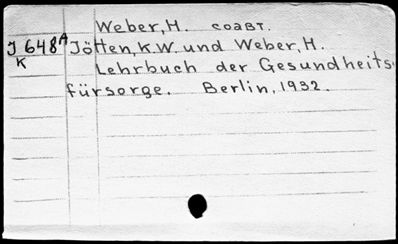 Weber, H. соавт.
J 648A Jötten, K.W. und Weber, H.
K Lehrbuch der Gesundheits-
fürsorge. Berlin, 1932.